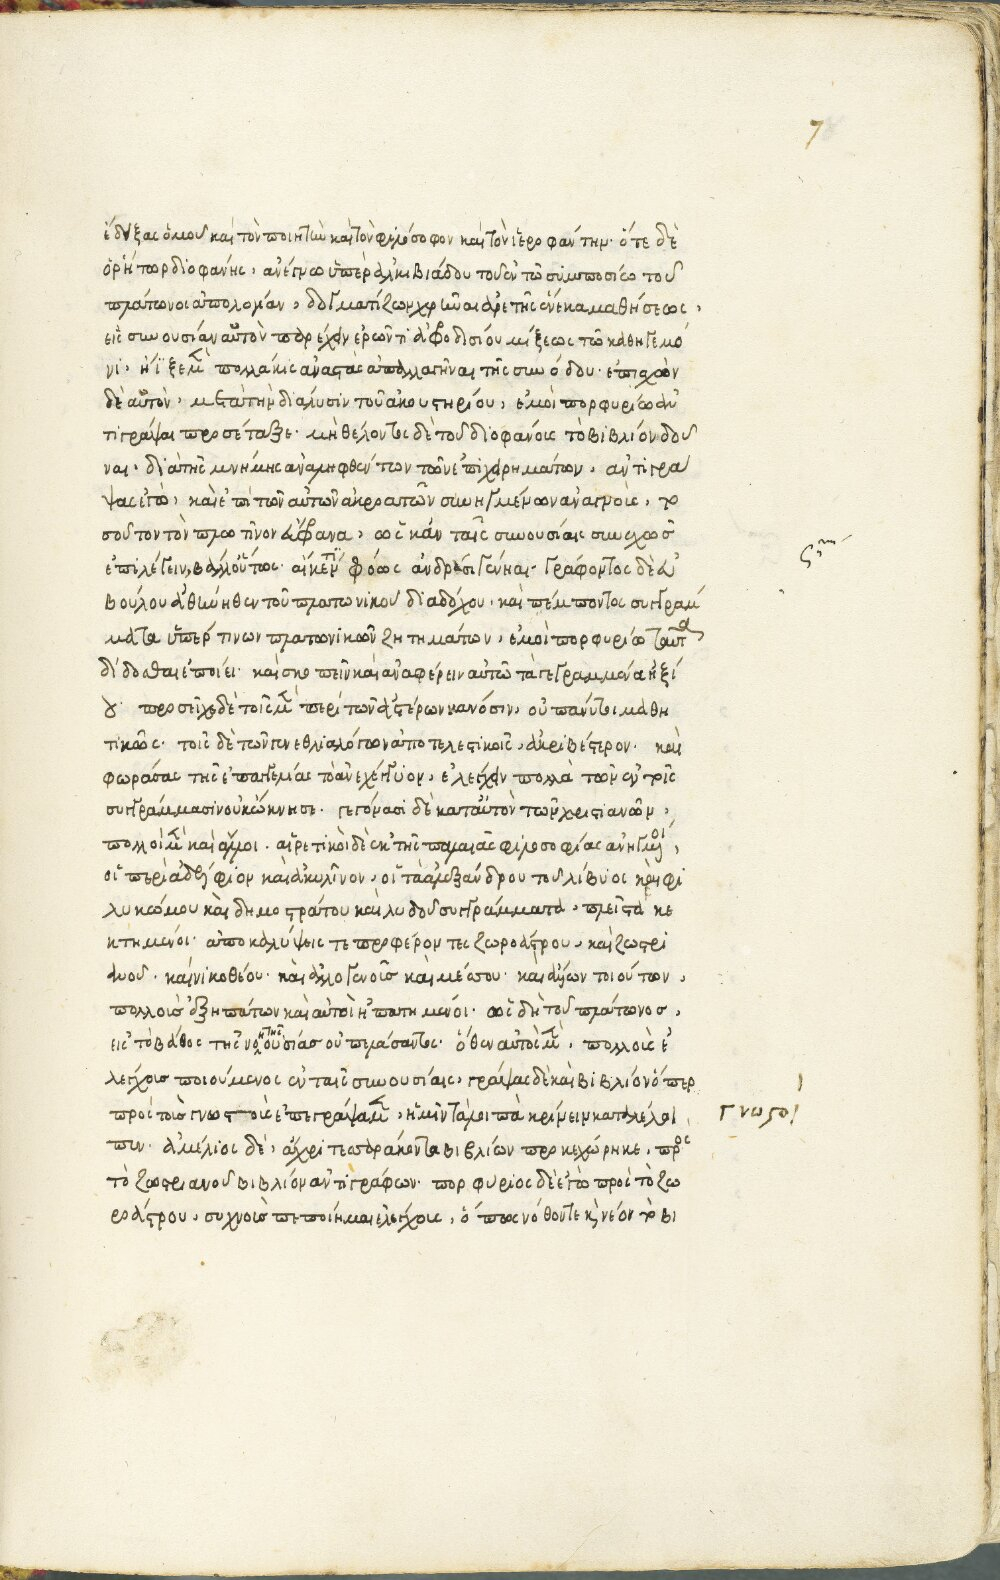 7
ἔδειξας ὁμοῦ καὶ τὸν ποιητὴν καὶ τὸν φιλόσοφον καὶ τὸν ἱεροφάντην· ὅτε δὲ
ὁ ῥήτωρ διοφάνης, ἀνέγνω ὑπὲρ ἀλκιβιάδου τοῦ ἐν τῷ συμποσίῳ τοῦ
πλάτωνος ἀπολογίαν, δογματίζων χρῆναι ἀρετῆς ἕνεκα μαθήσεως,
εἰς συνουσίαν αὑτὸν παρέχειν ἐρῶντι ἀφροδισίου μίξεως τῷ καθηγεμό
νι· ἤϊξε μὲν πολλάκις ἀναστὰς ἀπαλλαγῆναι τῆς συνόδου· ἐπισχὼν
δὲ αὑτὸν, μετὰ τὴν διάλυσιν τοῦ ἀκουστηρίου, ἐμοὶ πορφυρίῳ ἀν
τιγράψαι προσέταξε· μὴ θέλοντος δὲ τοῦ διοφάνους τὸ βιβλίον δοῦ
ναι, διὰ τῆς μνήμης ἀναληφθέντων τῶν ἐπιχειρημάτων, ἀντιγρά
ψας ἐγὼ, καὶ ἐπὶ τῶν αὐτῶν ἀκροατῶν συνηγμένων ἀναγνοὺς, το
σοῦτον τὸν πλωτῖνον εὔφρανα, ὡς κἀν ταῖς συνουσίαις συνεχῶς
ἐπιλέγειν, βάλλ' οὕτως αἴ κέν τι φόως ἄνδρεσι γένηαι· γράφοντος δὲ εὐ
βούλου ἀθήνηθεν τοῦ πλατωνικοῦ διαδόχου, καὶ πέμποντος συγγράμ
ματα ὑπέρ τινων πλατωνικῶν ζητημάτων, ἐμοὶ πορφυρίῳ ταῦτα
δίδοσθαι ἐποίει· καὶ σκοπεῖν καὶ ἀναφέρειν αὐτῷ τὰ γεγραμμένα ἠξί
ου· προσεῖχε δὲ τοῖς μὲν περὶ τῶν ἀστέρων κανόσιν, οὐ πάνυ τι μαθη
τικῶς· τοῖς δὲ τῶν γενεθλιαλόγων ἀποτελεστικοῖς, ἀκριβέστερον· καὶ
φωράσας τῆς ἐπαγγελίας τὸ ἀνεχέγγυον, ἐλέγχειν πολλὰ τῶν ἐν τοῖς
συγγράμμασιν οὐκ ὤκνησε· γεγόνασι δὲ κατ' αὐτὸν τῶν χριστιανῶν,
πολλοὶ μὲν καὶ ἄλλοι· αἱρετικοὶ δὲ ἐκ τῆς παλαιᾶς φιλοσοφίας ἀνηγμένοι,
οἱ περὶ ἀδέλφιον καὶ ἀκυλῖνον, οἳ τὰ ἀλεξάνδρου τοῦ λίβυος καὶ φι
λυκώμου καὶ δημοστράτου καὶ λυδοῦ συγγράμματα, πλεῖστα κε
κτημένοι· ἀποκαλύψεις τε προφέροντες ζωροάστρου, καὶ ζωστρι
ανοῦ, καὶ νικοθέου, καὶ ἀλλογενοῦς καὶ μέσου· καὶ ἄλλων τοιούτων,
πολλοὺς ἐξηπάτων καὶ αὐτοὶ ἠπατημένοι· ὡς δὴ τοῦ πλάτωνος,
εἰς τὸ βάθος τῆς νοητῆς οὐσίας οὐ πελάσαντος· ὅθεν αὐτὸς μὲν, πολλοὺς ἐ
λέγχους ποιούμενος ἐν ταῖς συνουσίαις, γράψας δὲ καὶ βιβλίον ὅπερ
πρὸς τοὺς γνωστικοὺς ἐπεγράψαμεν, ἡμῖν τὰ λοιπὰ κρίνειν καταλέλοι
γνωστοί
πεν· ἀμέλιος δὲ, ἄχρι τεσσαράκοντα βιβλίων προκεχώρηκε, πρὸς
τὸ ζωστριανοῦ βιβλίον ἀντιγράφων· πορφύριος δὲ ἐγὼ πρὸς τὸ ζω
ροάστρου, συχνοὺς πεποίημαι ἐλέγχους, ὅπως νόθον τε καὶ νέον τὸ βι